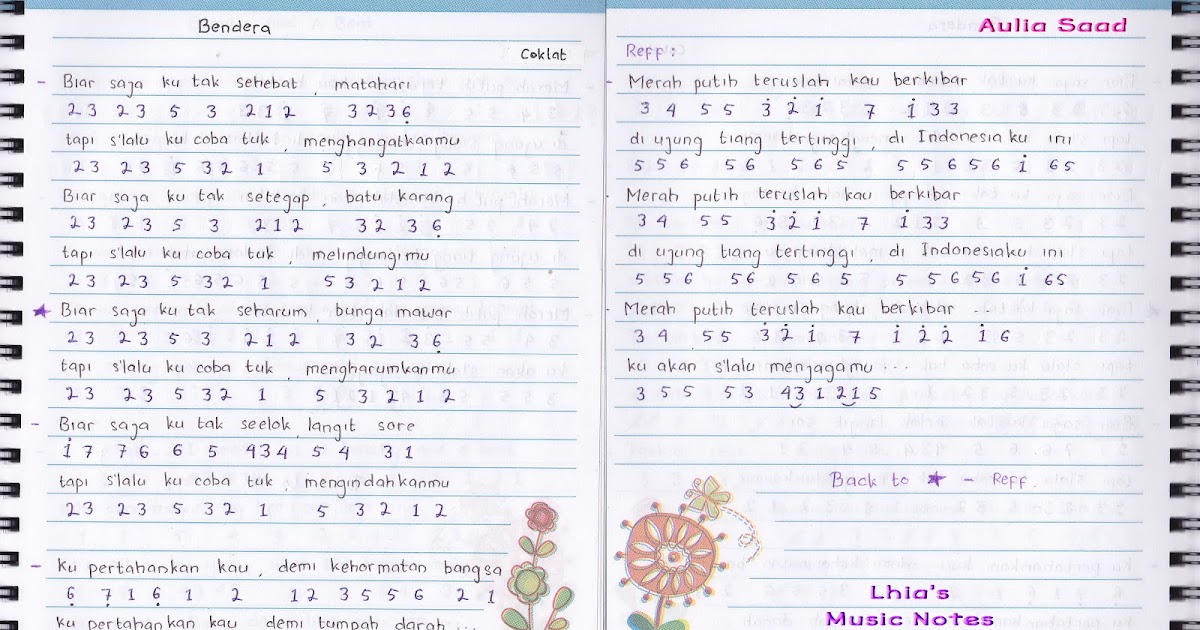 Bendera
Coklat
- Biar saja ku tak sehebat matahari
23 23 5 3 212 3236̣
tapi s'lalu ku coba tuk, menghangatkanmu
23 23 5 32 1 5 3 2 1 2
Biar saja ku tak setegap, batu karang
23 23 5 3 212 32 36̣
tapi s'lalu ku coba tuk, melindungimu
23 23 5 32 1 53 212
★ Biar saja ku tak seharum, bunga mawar
23 23 5 3 212 32 36̣
tapi s'lalu ku coba tuk, mengharumkanmu
23 23 5 32 1 5 3 2 1 2
- Biar saja ku tak seelok, langit sore
1̇7 76 6 5 434 54 31
tapi s'lalu ku coba tuk, mengindahkanmu
23 23 5 32 1 5 32 12
- Ku pertahankan kau, demi kehormatan bangsa
6̣ 7̣16̣1 2 12 3556 21
ku pertahankan kau demi tumpah darah ...
Aulia Saad
Reff :
- Merah putih teruslah kau berkibar
34 55 3̇2̇1̇ 7 1̇33
di ujung tiang tertinggi, di Indonesia ku ini
556 56 565 5 5656 1̇ 65
- Merah putih teruslah kau berkibar
34 55 3̇2̇1̇ 7 1̇33
di ujung tiang tertinggi, di Indonesiaku ini
556 56 565 5 56561̇ 65
- Merah putih teruslah kau berkibar ...
34 55 3̇2̇1̇ 7 1̇2̇2̇ 1̇6
ku akan s'lalu menjagamu ...
3 55 53 431215
Back to ★ - Reff.
Lhia's
Music Notes